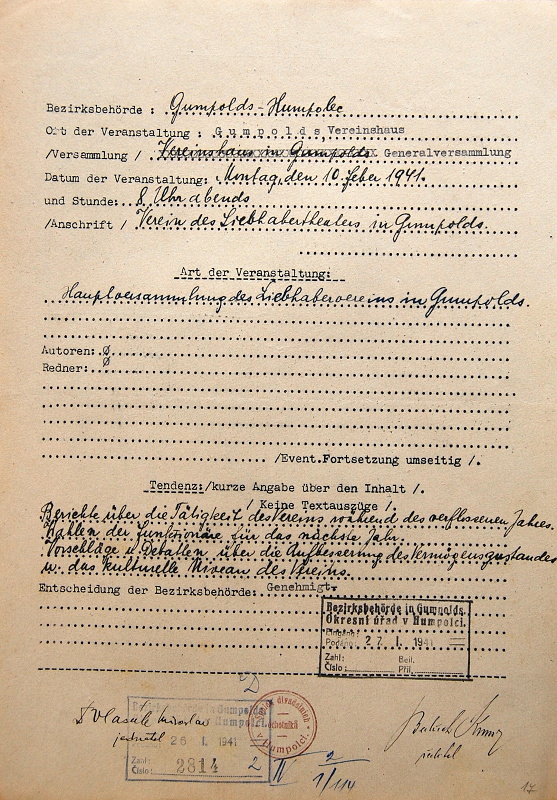 Bezirksbehörde : Gumpolds-Humpolec
Ort der Veranstaltung : Gumpolds Vereinshaus
/Versammlung / Vereinshaus in Gumpolds Generalversammlung
Datum der Veranstaltung: Montag, den 10 feber 1941.
und Stunde: 8 Uhr abends
/Anschrift / Verein des Liebhabertheaters in Gumpolds.
Art der Veranstaltung:
Hauptversammlung des Liebhabervereins in Gumpolds.
Autoren: Ø
Redner: Ø
/Event.Fortsetzung umseitig /.
Tendenz:/kurze Angabe über den Inhalt /.
/ Keine Textauszüge /.
Berichte über die Tätigkeit des Vereins während des verflossenen Jahres.
Wahlen der Funktionäre für das nächste Jahr.
Vorschläge u. Debatten über die Aufbesserung des Vermögenszustandes
u. das kulturelle Niveau des Vereins.
Entscheidung der Bezirksbehörde: Genehmigt.
Bezirksbehörde in Gumpolds.
Okresní úřad v Humpolci.
Eingang:
Podáno: 27. I. 1941
Zahl: Beil.
Číslo: Příl.
Bezirksbehörde in Gumpolds
Humpolci.
26 I. 1941
Zahl:
Číslo: 2814 2
divadelních
ochotníků
v Humpolci.
Miroslav
jednatel
ředitel
II 2
1/114
17